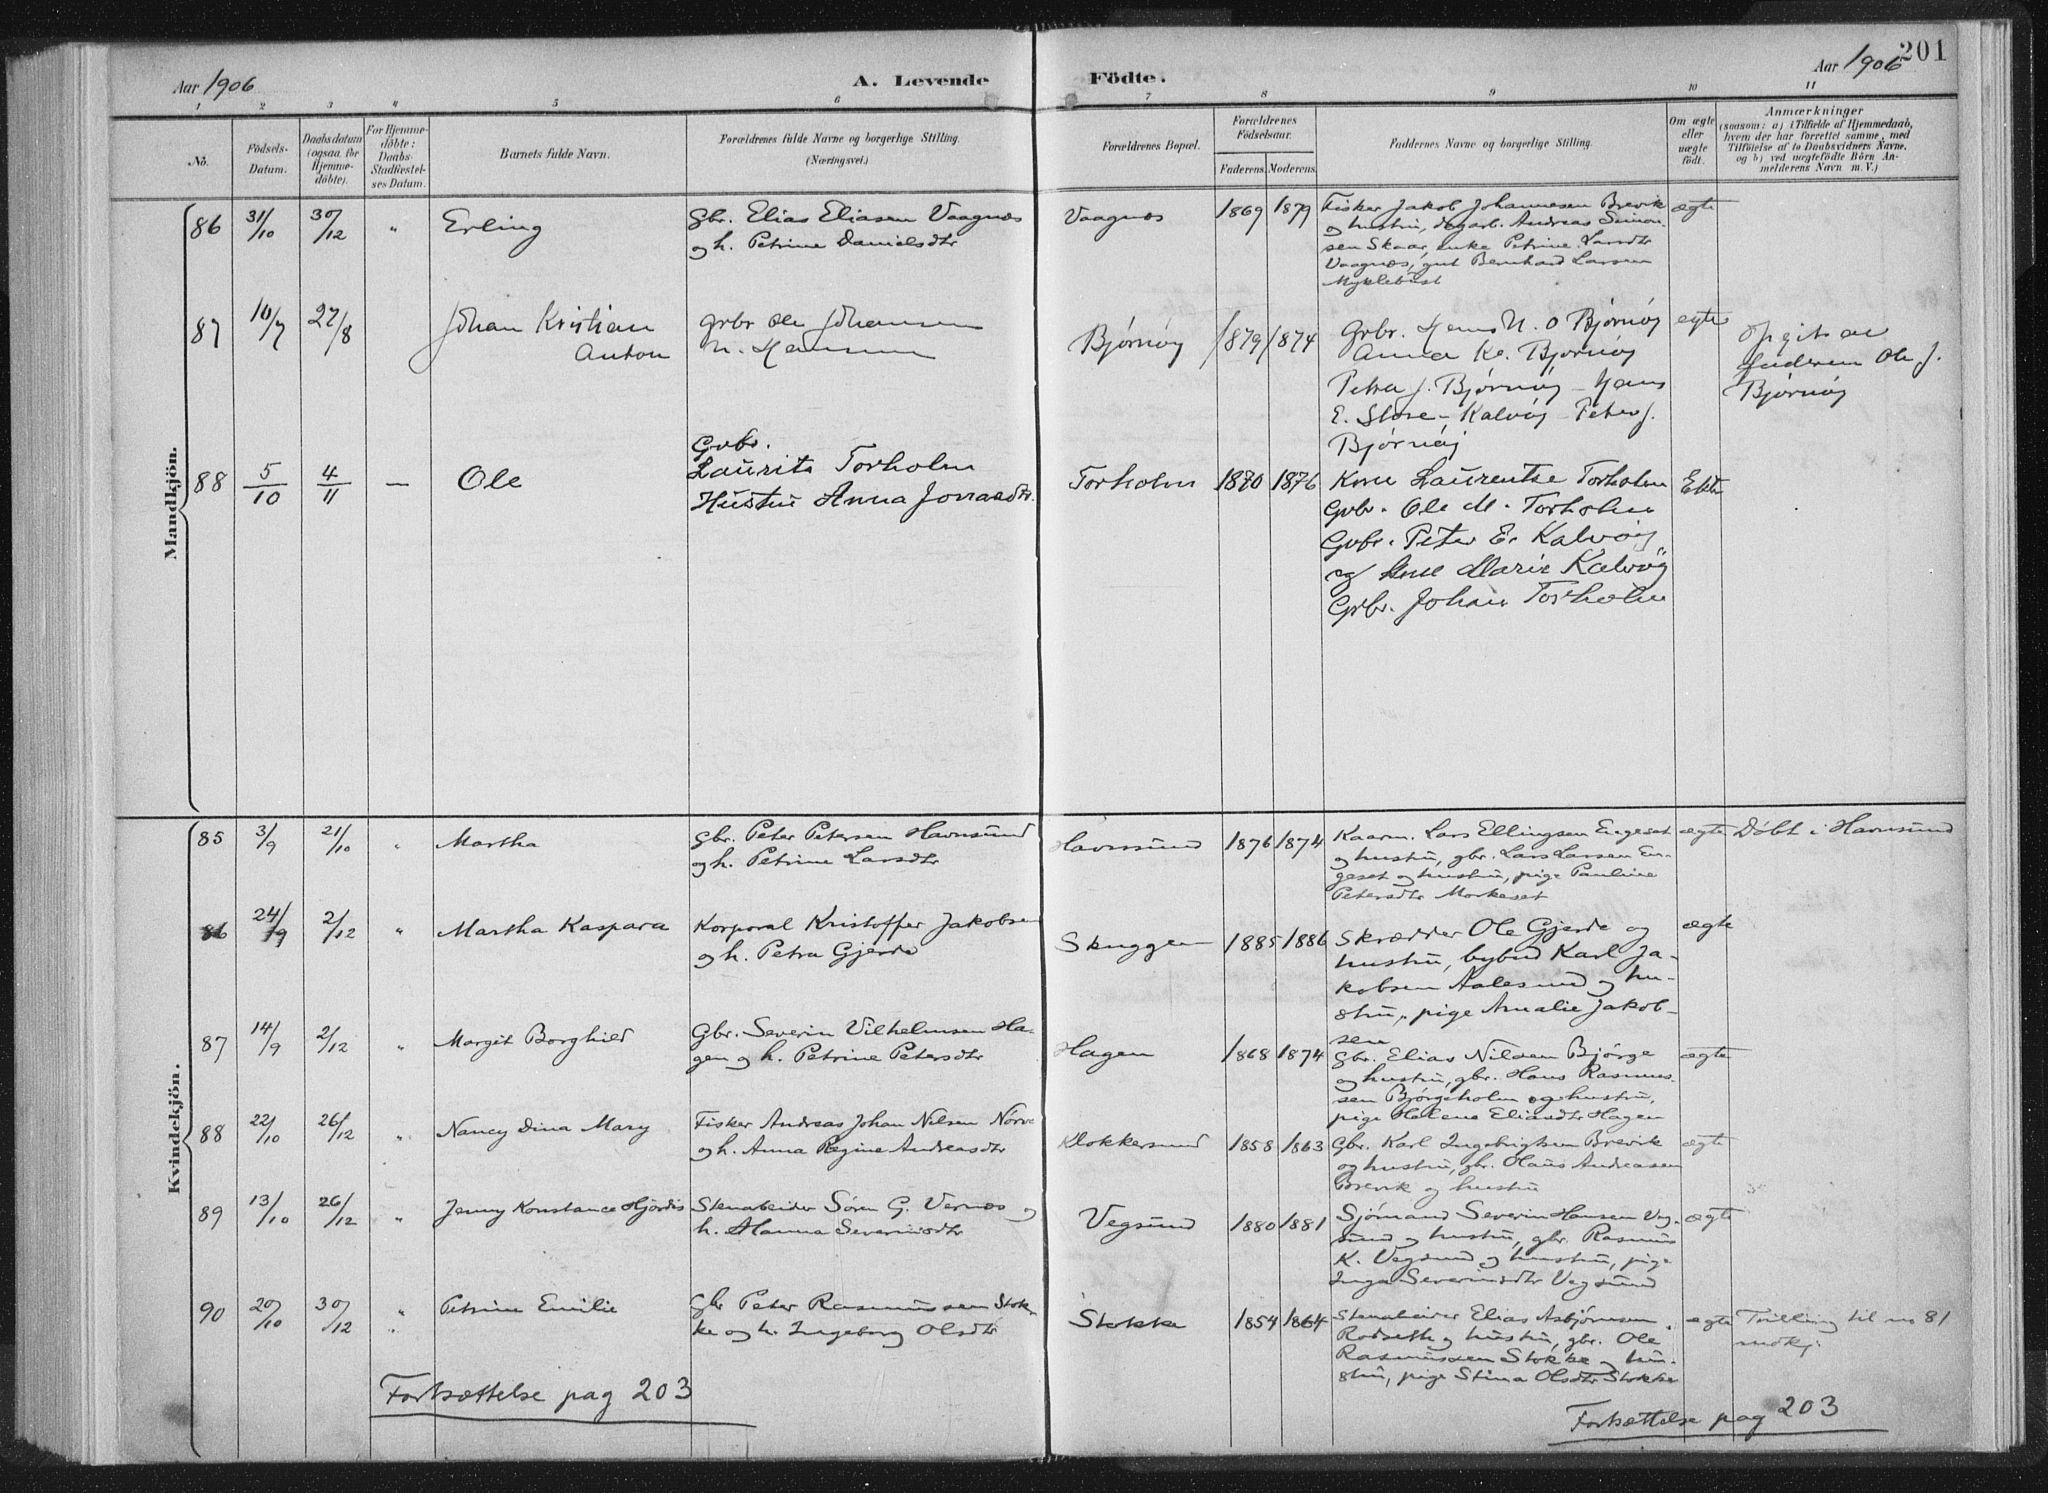 201
Aar 1906
A. Levende
Födte.
Aar 1906
1 2 3 4 5 6 7 8 9 10 11
No.
Födsels-
Datum.
Daabsdatum
(ogsaa for
Hjemme-
döbte).
For Hjemme-
döbte:
Daabs-
Stadfæstel-
ses Datum.
Barnets fulde Navn.
Forældrenes fulde Navne og borgerlige Stilling.
(Næringsvei.)
Forældrenes Bopæl.
Forældrenes
Födselsaar.
Faderens. Moderens.
Faddernes Navne og borgerlige Stilling.
Om ægte
eller
uægte
födt.
Anmærkninger
(saasom: a) i Tilfælde af Hjemmedaab,
hvem der har forrettet samme, med
Tilföielse af to Daabsvidners Navne.
og b) ved uægtefödte Börn An-
melderens Navn m. V.)
Mandkjön.
86 31/10 30/12 " Erling
Gbr. Elias Eliasen Vaagnæs
og h. Petrine Danielsdtr
Vaagnæs 1869 1879
Fisker Jakob Johannesen Brevik
og hustru, dagarb. Andreas Simon-
sen Skaar, enke Petrine Larsdtr
Vaagnæs, gut Bernhard Larsen
Myklebust
ægte
87 10/7 27/8
Johan Kristian
Anton
Grbr Ole Johansen
Bjørnøy 1879 1874
Grbr. Hans N. o Bjørnøy
Anna Ke. Bjørnøy
Petra J. Bjørnøy - Hans
E. Slore - Kalvøy - Peter J.
Bjørnøy
egte
Opgit av
faderen Ole J.
Bjørnøy
88 5/10 4/11 — Ole
Grbr.
Laurits Torholm
Hustru Anna Jonasdtr.
Torholm 1870 1876
Kone Laurentse Torholm
Grbr. Ole M. Torholm
Grbr. Peter E. Kalvøy
og Ane Marie Kalvøy
Grbr. Johan Torholm
Ekte
Kvindekjön.
85 3/9 21/10 " Martha
Gbr. Peter Petersen Havnsund
og h. Petrine Larsdtr
Havnsund 1876 1874
Kaarm. Lars Ellingsen Engeset
og hustru, gbr. Lars Larsen En-
geset og hustru, pige Pauline
Petersdtr Morkeset
ægte Døbt i Havnsund
86 24/9 2/12 " Martha Kaspara
Korporal Kristoffer Jakobsen
og h. Petra Gjerde
Skuggen 1885 1886
Skrædder Ole Gjerde og
hustru, bybud Karl Ja-
kobsen Aalesund og hu-
stru, pige Amalie Jakob-
sen
ægte
87 14/9 2/12 " Margit Borghild
Gbr. Severin Vilhelmsen Ha-
gen og h. Petrine Petersdtr
Hagen 1868 1874
Gbr. Elias Nilsen Bjørge
og hustru, gbr. Hans Rasmus-
sen Bjørgeholm og hustru,
pige Helene Eliasdtr Hagen
ægte
88 22/10 26/12 " Nancy Dina Mary
Fisker Andreas Johan Nilsen Nørve
og h. Anna Regine Andreasdtr
Klokkersund 1858 1863
Gbr. Karl Ingebrigtsen Brevik
og hustru, gbr. Hans Andreasen
Brevik og hustru
ægte
89 13/10 26/12 " Jenny Konstance Hjørdis
Stenarbeider Søren G. Vernæs og
h. Hanna Severinsdtr
Vegsund 1880 1881
Sjømand Severin Hansen Veg-
sund og hustru, gbr. Rasmus
K. Vegsund og hustru, pige
Inga Severinsdtr Vegsund
ægte
90 20/10 30/12 " Petrine Emilie
Gbr Peter Rasmussen Stok-
ke og h. Ingeborg Olsdtr
Stokke 1854 1864
Stenarbeider Elias Asbjørnsen
Rodseth og hustru, gbr. Ole
Rasmussen Stokke og hu-
stru, pige Stina Olsdtr Stokke
ægte Tvilling til no 81
mdkj.
Fortsættelse pag 203
Fortsættelse pag 203